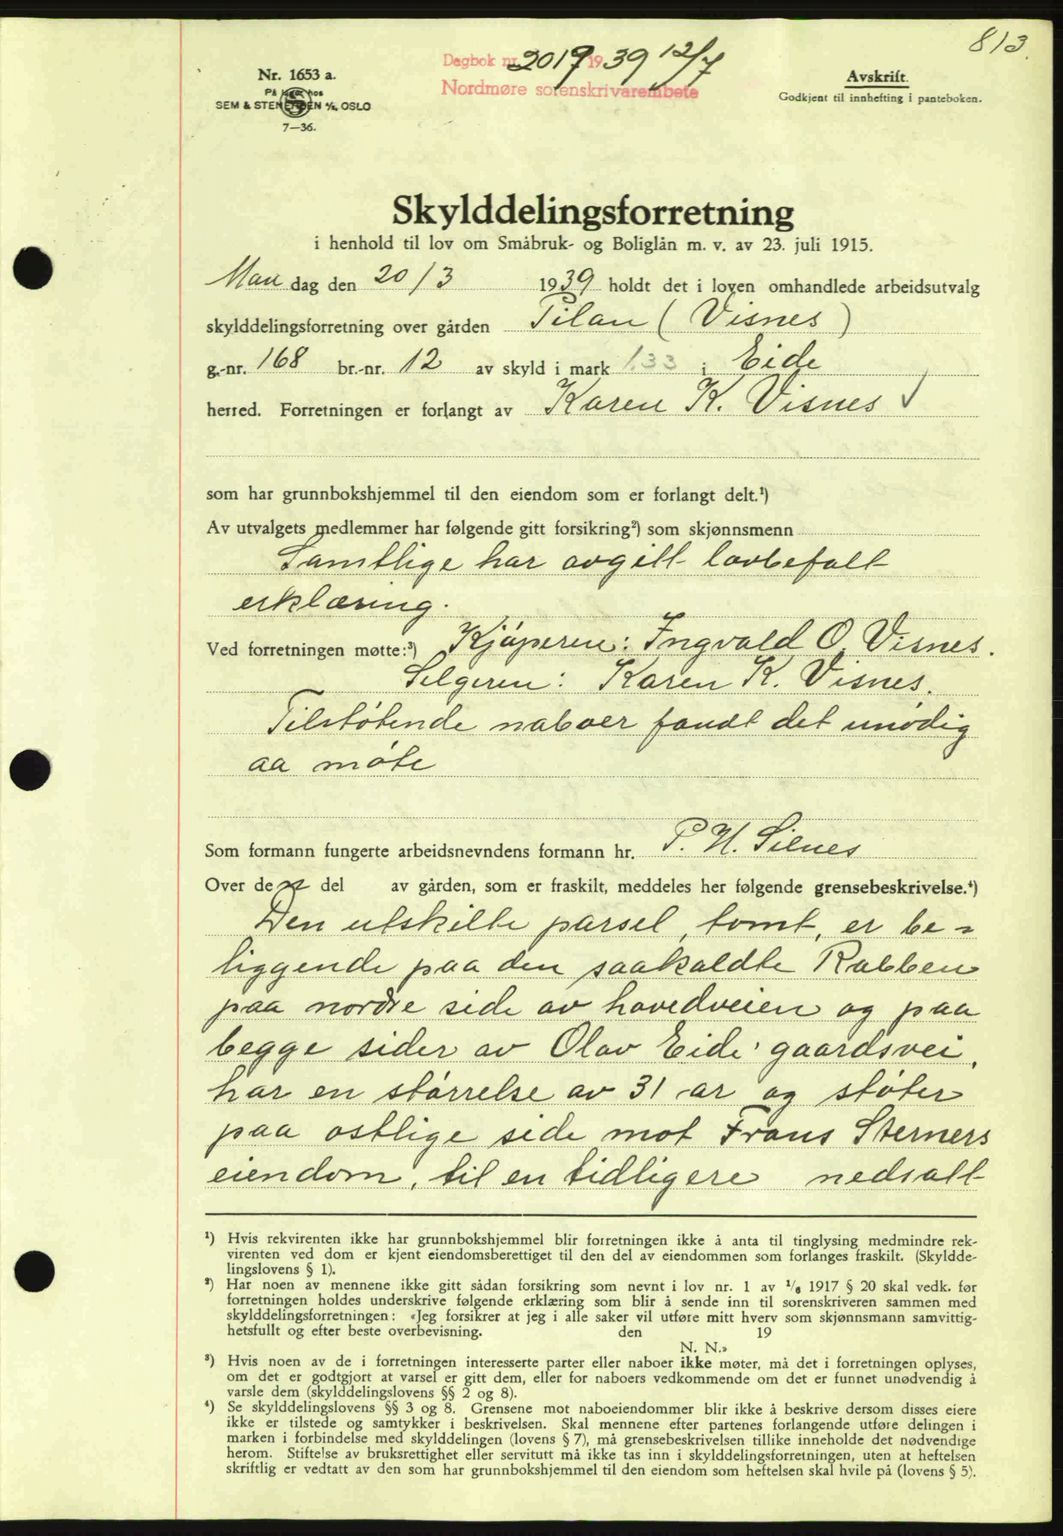 813
Dagbok nr. 2019 1939 12/7
Nordmøre sorenskrivarembete
Nr. 1653 a.
På lager hos
SEM & STENERSEN A/S, OSLO
7—36.
Avskrift.
Godkjent til innhefting i panteboken.
Skylddelingsforretning
i henhold til lov om Småbruk- og Boliglån m. v. av 23. juli 1915.
Man dag den 20/3 1939 holdt det i loven omhandlede arbeidsutvalg
skylddelingsforretning over gården Pilan (Visnes)
g.-nr. 168 br.-nr. 12 av skyld i mark 1.33 i Eide
herred. Forretningen er forlangt av Karen K. Visnes
som har grunnbokshjemmel til den eiendom som er forlangt delt.¹)
Av utvalgets medlemmer har følgende gitt forsikring²) som skjønnsmenn
Samtlige har avgitt lovbefalt
erklæring.
Ved forretningen møtte:³) Kjøperen: Ingvald O. Visnes.
Selgeren: Karen K. Visnes.
Tilstøtende naboer fandt det unødig
aa møte
Som formann fungerte arbeidsnevndens formann hr. P. H. Silnes
Over den del av gården, som er fraskilt, meddeles her følgende grensebeskrivelse.⁴)
Den utskilte parsel, tomt, er be=
liggende paa den saakaldte Rabben
paa nordre side av hovedveien og paa
begge sider av Olav Eide' gaardsvei,
har en størrelse av 31 ar og støter
paa østlige side mot Frans Sterners
eiendom, til en tidligere nedsatt
¹) Hvis rekvirenten ikke har grunnbokshjemmel blir forretningen ikke å anta til tinglysing medmindre rek-
virenten ved dom er kjent eiendomsberettiget til den del av eiendommen som forlanges fraskilt. (Skyldde-
lingslovens § 1).
²) Har noen av mennene ikke gitt sådan forsikring som nevnt i lov nr. 1 av ¹/₆ 1917 § 20 skal vedk. før
forretningen holdes underskrive følgende erklæring som blir å sende inn til sorenskriveren sammen med
skylddelingsforretningen: «Jeg forsikrer at jeg i alle saker vil utføre mitt hverv som skjønnsmann samvittig-
hetsfullt og efter beste overbevisning. den 19
N. N.»
³) Hvis noen av de i forretningen interesserte parter eller naboer ikke møter, må det i forretningen oplyses,
om det er godtgjort at varsel er gitt dem, eller for naboers vedkommende om det er funnet unødvendig å
varsle dem (skylddelingslovens §§ 2 og 8).
⁴) Se skylddelingslovens §§ 3 og 8. Grensene mot naboeiendommer blir ikke å beskrive dersom disses eiere
ikke er tilstede og samtykker i beskrivelsen. Skal mennene efter partenes forlangende utføre delingen i
marken i forbindelse med skylddelingen (lovens § 7), må grensebeskrivelsen tillike inneholde det nødvendige
herom. Stiftelse av bruksrettighet eller servitutt må ikke tas inn i skylddelingsforretningen, uten at heftelsen
skriftlig er vedtatt av den som har grunnbokshjemmel til den eiendom som heftelsen skal hvile på (lovens § 5).